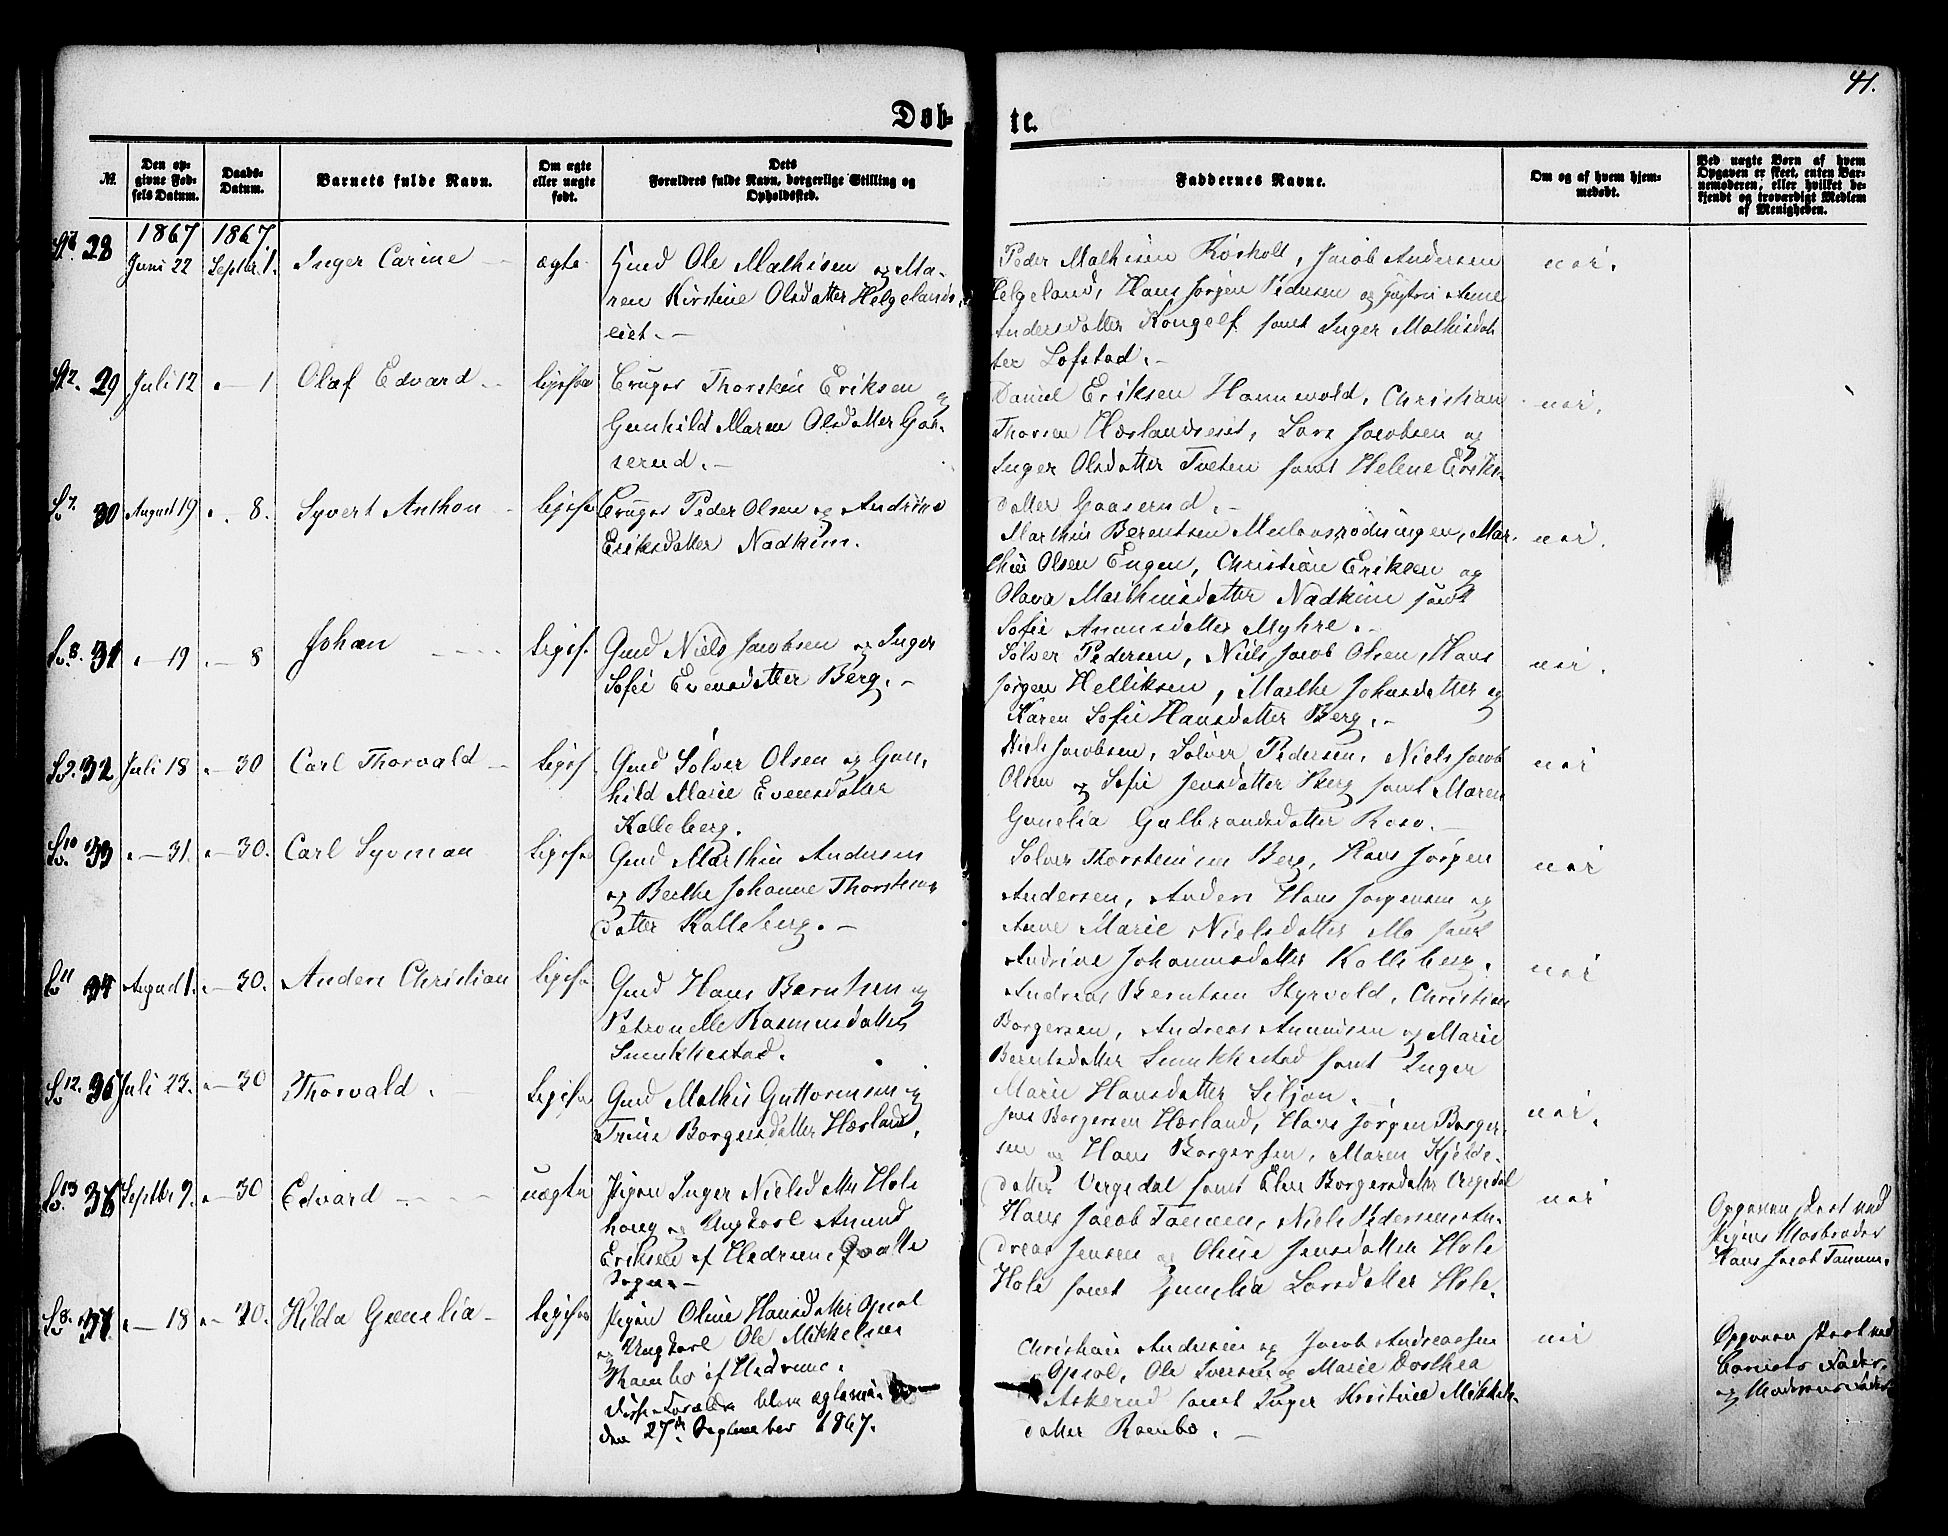 41.
Døb- te.
№
Den op-
givne Fød-
sels Datum.
Daabs-
Datum.
Barnets fulde Navn.
Om ægte
eller uægte
født.
Dets
Forældres fulde Navn, borgerlige Stilling og
Opholdssted.
Faddernes Navne.
Om og af hvem hjem-
medøbt.
Ved uægte Børn af hvem
Opgaven er skeet, enten Bar-
nemoderen, eller hvilket be-
kjendt og troværdigt Medlem
af Menigheden.
1867 1867
28 Juni 22 Septbr. 1. Inger Carine ægte
Gmd Ole Mathisen og Ma-
ren Kirstine Olsdatter Helgelands
eiet.
Peder Mathisen Røsholt, Jacob Andersen
Helgeland, Hans Jørgen Pedersen og Anne
Andersdatter Kongelf samt Inger Mathisdat
ter Lofstad.
nei.
29 Juli 12 " 1 Olaf Edvard ligesaa
Bruger Thorsten Eriksen og
Gunhild Maren Olsdatter Gaa-
serud.
Daniel Eriksen Hannevold, Christian
Thorsen Hærlandseiet, Lars Jacobsen og
Inger Olsdatter Tveten samt Helene Eriks-
datter Gaaserud.
nei.
30 August 19 " 8. Syvert Anthon ligesaa
Bruger Peder Olsen og Andrine
Eriksdatter Nadkim.
Marthin Berentsen Mar-
thin Olsen Engen, Christian Eriksen og
Olava Marthinsdatter Nadkim samt
Sofie Amunsdatter Myhre.
nei.
31 " 19 " 8 Johan ligesaa
Gmd Niels Jacobsen og Inger
Sofie Evensdatter Berg.
Sølver Pedersen, Niels Jacob Olsen, Hans
Jørgen Helliksen, Marthe Johnsdatter og
Karen Sofie Hansdatter Berg.
nei.
32 Juli 18 " 30 Carl Thorvald ligesaa
Gmd Sølver Olsen og Gun-
hild Marie Evensdatter
Kalleberg.
Niels Jacobsen, Sølver Pedersen, Niels Jacob
Olsen og Sofie Jensdatter Berg samt Maren
Gunelia Gulbrandsdatter Roso.
nei
33 " 31. " 30. Carl Syvman ligesaa
Gmd Marthin Andersen
og Berthe Johanne Thorstens-
datter Kalleberg.
Sølver Thorstensen Berg, Hans Jørgen
Andersen, Anders Hans Jørgensen og
Anne Marie Nielsdatter Mo samt
Andrine Johannesdatter Kalleberg.
nei
34 August 1. " 30. Anders Christian ligesaa
Gmd Hans Berntsen og
Petronelle Rasmusdatter
Smukkestad.
Andreas Berntsen Styrvold, Christian
Borgersen, Andreas Amundsen og Marie
Berntsdatter Smukkestad samt Inger
Marie Hansdatter Siljan.
nei
35 Juli 23. " 30 Thorvald. ligesaa
Gmd Mathis Guttormsen og
Trine Borgersdatter Hærland.
Jens Borgersen Hærland, Hans Jørgen Borger-
sen og Hans Borgersen, Maren Kjølde-
datter Vergedal samt Elen Borgersdatter Vergedal
nei.
36 Septbr 9. " 30 Edvard uægte
Pigen Inger Nielsdatter Hole
og Ungkarl Amund
Eriksen af Hedrum, Qvalle
Sogn.
Hans Jacob Tannum, Niels Pedersen An-
dreas Jensen og Oline Jensdatter Hole
Hole samt Gunelia Larsdatter Hole.
nei
Opgaven skeet ved
Pigens Morbroder
Hans Jacob Tannum.
37 " 18 " 30. Hilda Gunelia ligesaa
Pigen Oline Hansdatter Opsal
og Ungkarl Ole Mikkelsen
Rambo af Hedrum.
Disse Forældre bleve ægteviede
den 27de September 1867.
Christian Andersen og Jacob Andreassen
Opsal, Ole Iversen og Marie Dorthea
Askerud samt Inger Kirstine Mikkels-
datter Rambo.
nei
Opgaven skeet ved
Barnets Fader
og Moderens Fader